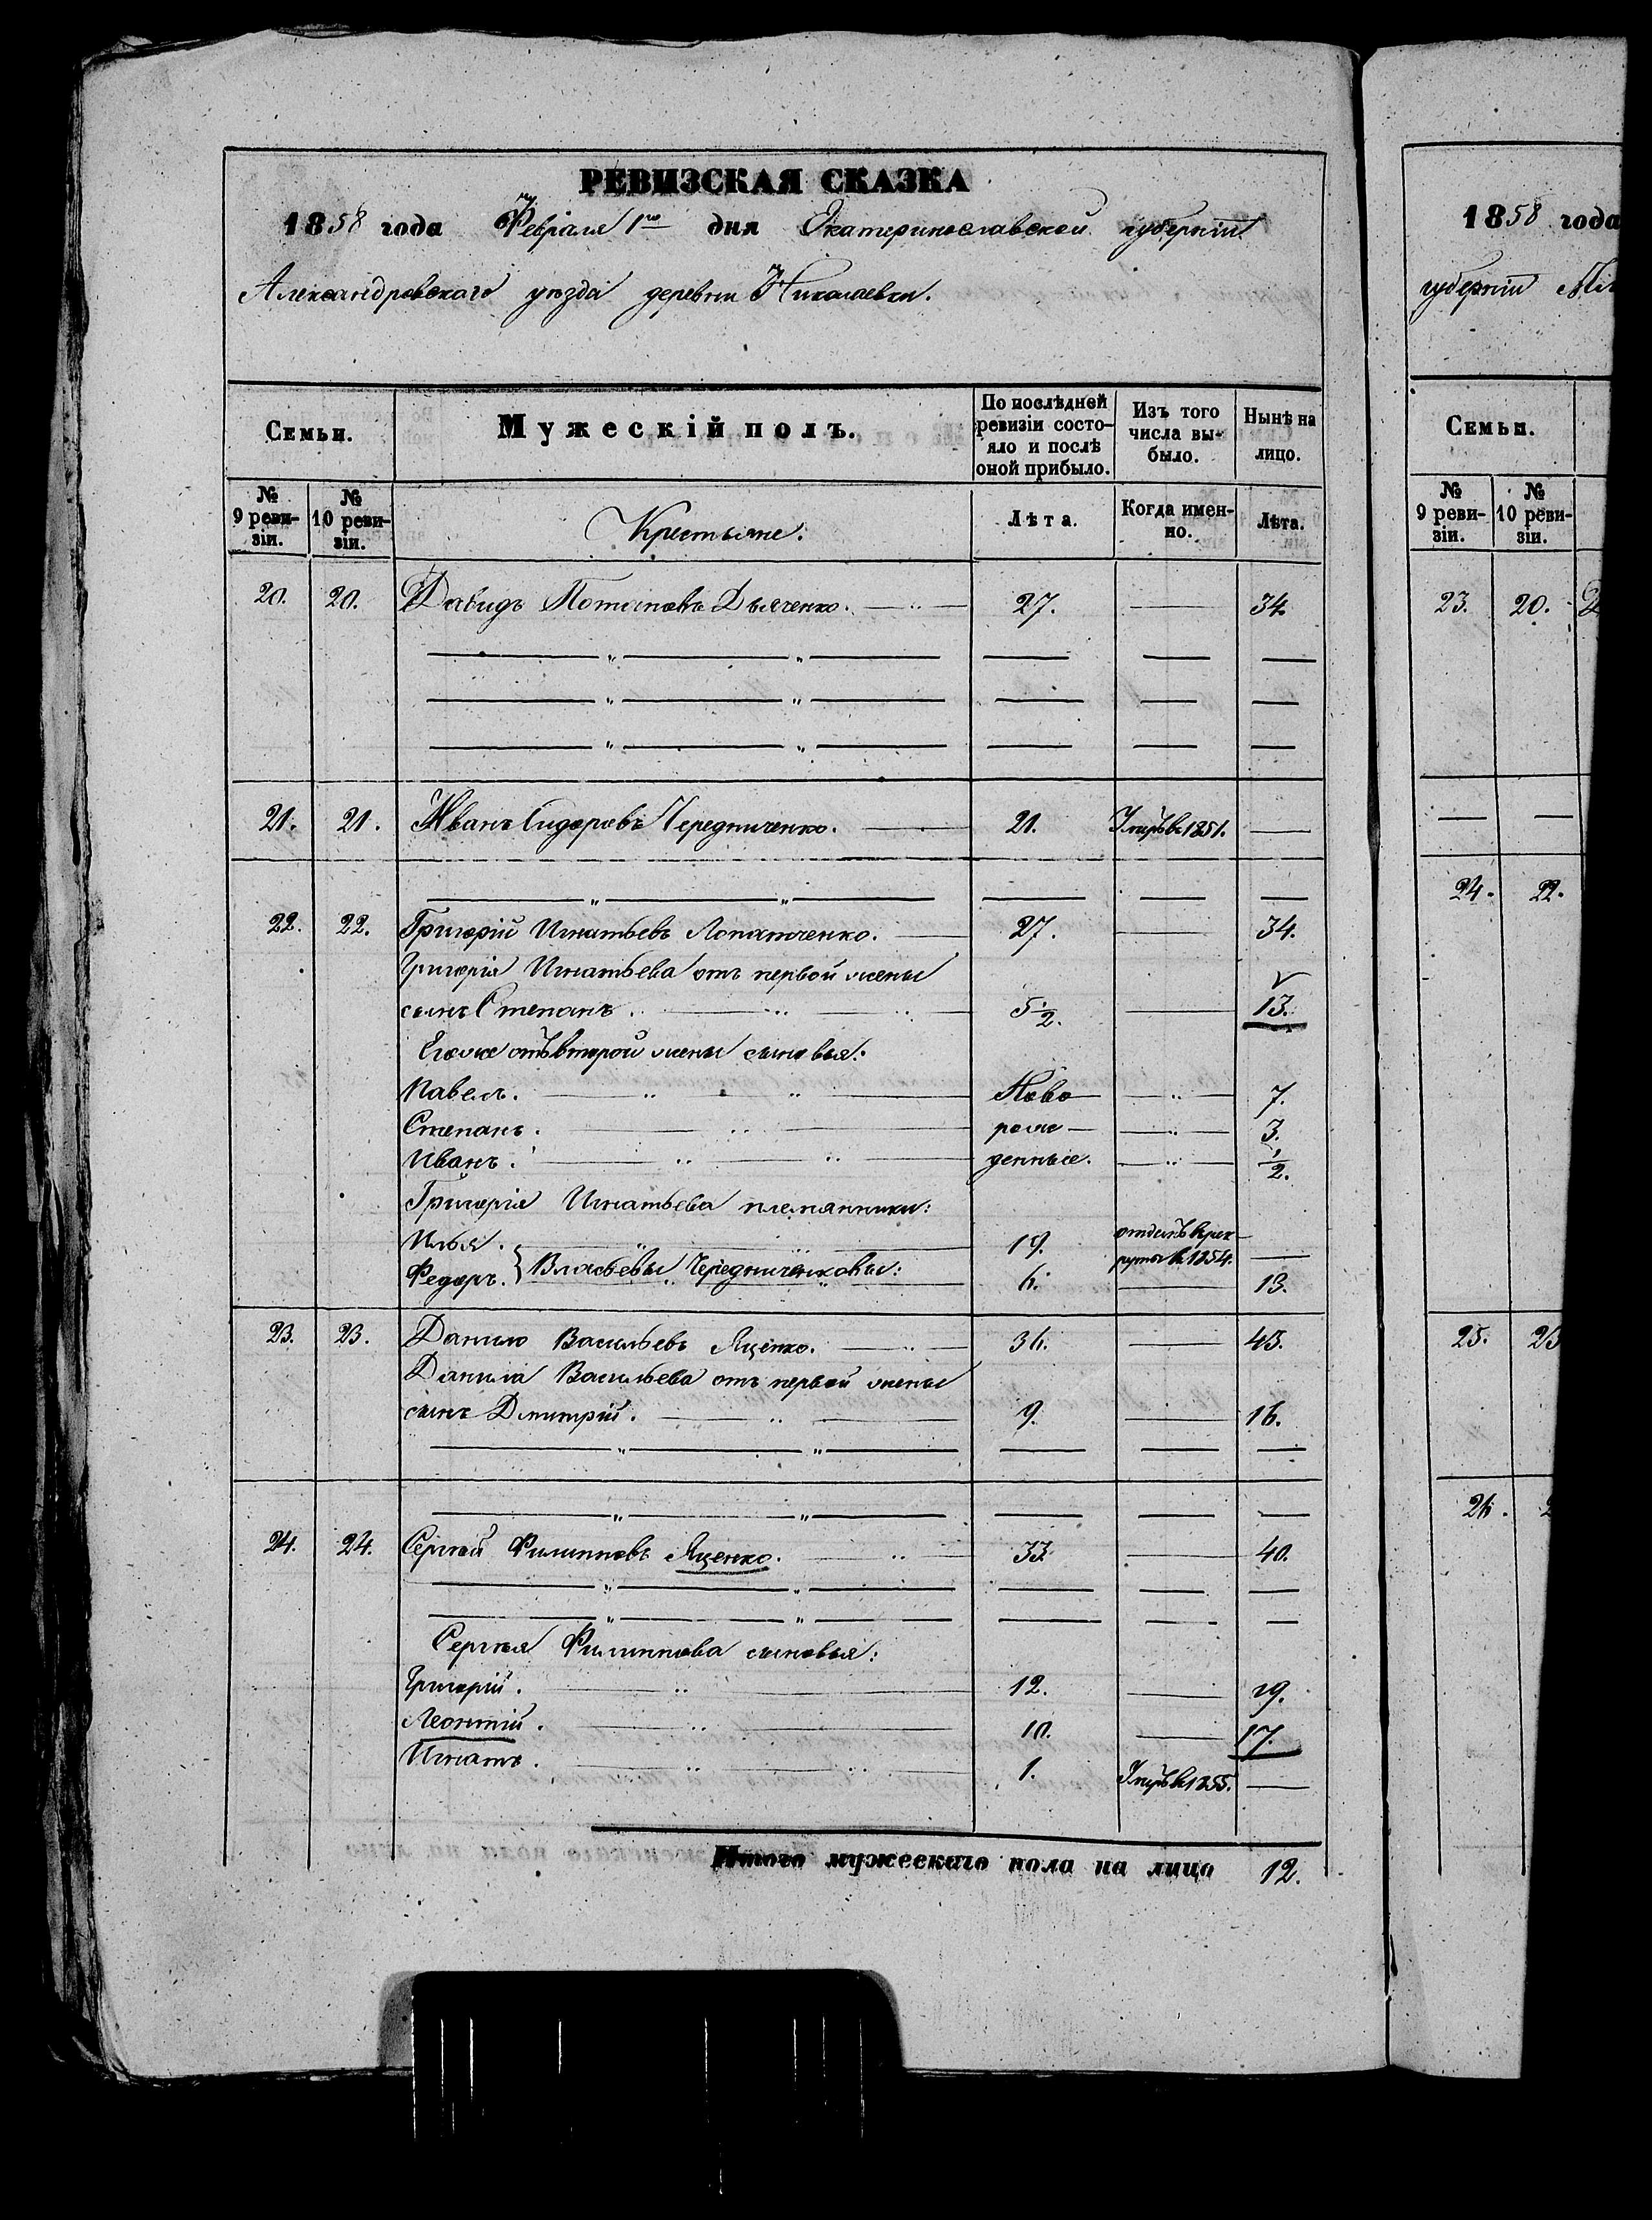 РЕВИЗСКАЯ СКАЗКА
1858 года Февраля 1го дня Екатеринославской губерніи
Александровскаго уѣзда деревни Николаевки.
Семьи. Мужескій полъ. По послѣдней ревизіи состояло и послѣ оной прибыло. Изъ того числа выбыло. Нынѣ на лицо.
№ 9 ревизіи. № 10 ревизіи. Крестьяне. Лѣта. Когда именно. Лѣта.
20. 20. Давидъ Потаповъ Дьяченко. 27. 34.
21. 21. Иванъ Сидоровъ Чередниченко. 21. Умеръ въ 1851.
22. 22. Григорій Игнатьевъ Лопатченко. 27. 34.
Григорія Игнатьева отъ первой жены
сынъ Степанъ. 5½. 13.
Его же отъ второй жены сыновья:
Павелъ. Ново 7.
Степанъ. рож 3.
Иванъ. денные. ½.
Григорія Игнатьева племянники:
Илья. 19. отданъ въ рекруты въ 1854.
Федоръ. } Власьевы Чередниченковы: 6. 13.
23. 23. Данило Васильевъ Яценко. 36. 43.
Данила Васильева отъ первой жены
сынъ Дмитрій. 9. 16.
24. 24. Сергѣй Филипповъ Яценко. 33. 40.
Сергѣя Филиппова сыновья:
Григорій. 12. 19.
Леонтій. 10. 17.
Игнатъ. 1. Умеръ въ 1855.
Итого мужескаго пола на лицо 12.
1858 года
губерніи
Семьи.
№ 9 ревизіи. № 10 ревизіи.
23. 20.
24. 22.
25. 23
26.